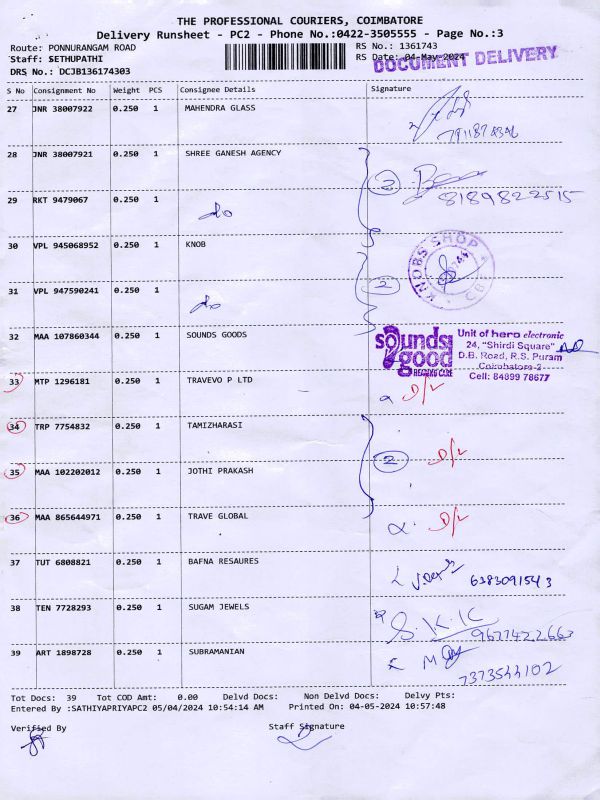 THE PROFESSIONAL COURIERS, COIMBATORE
Delivery Runsheet - PC2 - Phone No.:0422-3505555 - Page No.:3
Route: PONNURANGAM ROAD RS No.: 1361743
Staff: SETHUPATHI RS Date: 04-May-2024
DOCUMENT DELIVERY
DRS No.: DCJB136174303
S No Consignment No Weight PCS Consignee Details Signature
27 JNR 38007922 0.250 1 MAHENDRA GLASS
7911878396
28 JNR 38007921 0.250 1 SHREE GANESH AGENCY
2
8189822515
29 RKT 9479067 0.250 1 do
30 VPL 945068952 0.250 1 KNOB
KNOBS SHOP CBE
31 VPL 947590241 0.250 1 do
2
32 MAA 107860344 0.250 1 SOUNDS GOODS
sounds good HEARING CARE
Unit of hero electronic
24, "Shirdi Square"
D.B. Road, R.S. Puram
Coimbatore-2
Cell: 84899 78677
33 MTP 1296181 0.250 1 TRAVEVO P LTD D/L
34 TRP 7754832 0.250 1 TAMIZHARASI
2 D/L
35 MAA 102202012 0.250 1 JOTHI PRAKASH
36 MAA 865644971 0.250 1 TRAVE GLOBAL D/L
37 TUT 6808821 0.250 1 BAFNA RESAURES
6383091543
38 TEN 7728293 0.250 1 SUGAM JEWELS
S.K.K
9677422663
39 ART 1898728 0.250 1 SUBRAMANIAN
7373544102
Tot Docs: 39 Tot COD Amt: 0.00 Delvd Docs: Non Delvd Docs: Delvy Pts:
Entered By :SATHIYAPRIYAPC2 05/04/2024 10:54:14 AM Printed On: 04-05-2024 10:57:48
Verified By Staff Signature